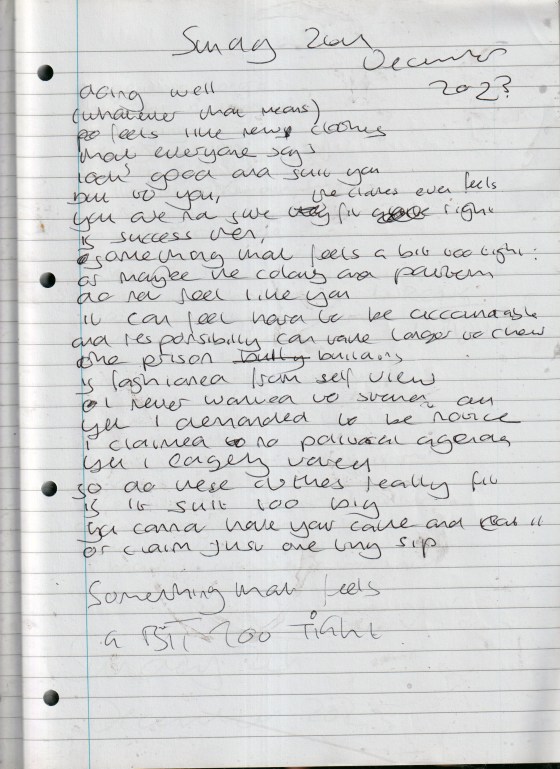 Sunday 20th
December
2023
doing well
(whatever that means)
feels like new clothes
that everyone says
look good and suit you
but to you, the clothes ever feels
you are not sure they fit right
is success then,
something that feels a bit too tight:
or maybe the colours and pattern
do not feel like you
it can feel hard to be accountable
and responsibility can take longer to chew
the prison building
is fashioned from self view
I never wanted to stand out
yet I demanded to be notice
I claimed no political agenda
yet I eagerly voted
so do these clothes really fit
is it suit too big
you cannot have your cake and eat it
or claim just one tiny sip
Something that feels
a BIT TOO Tight